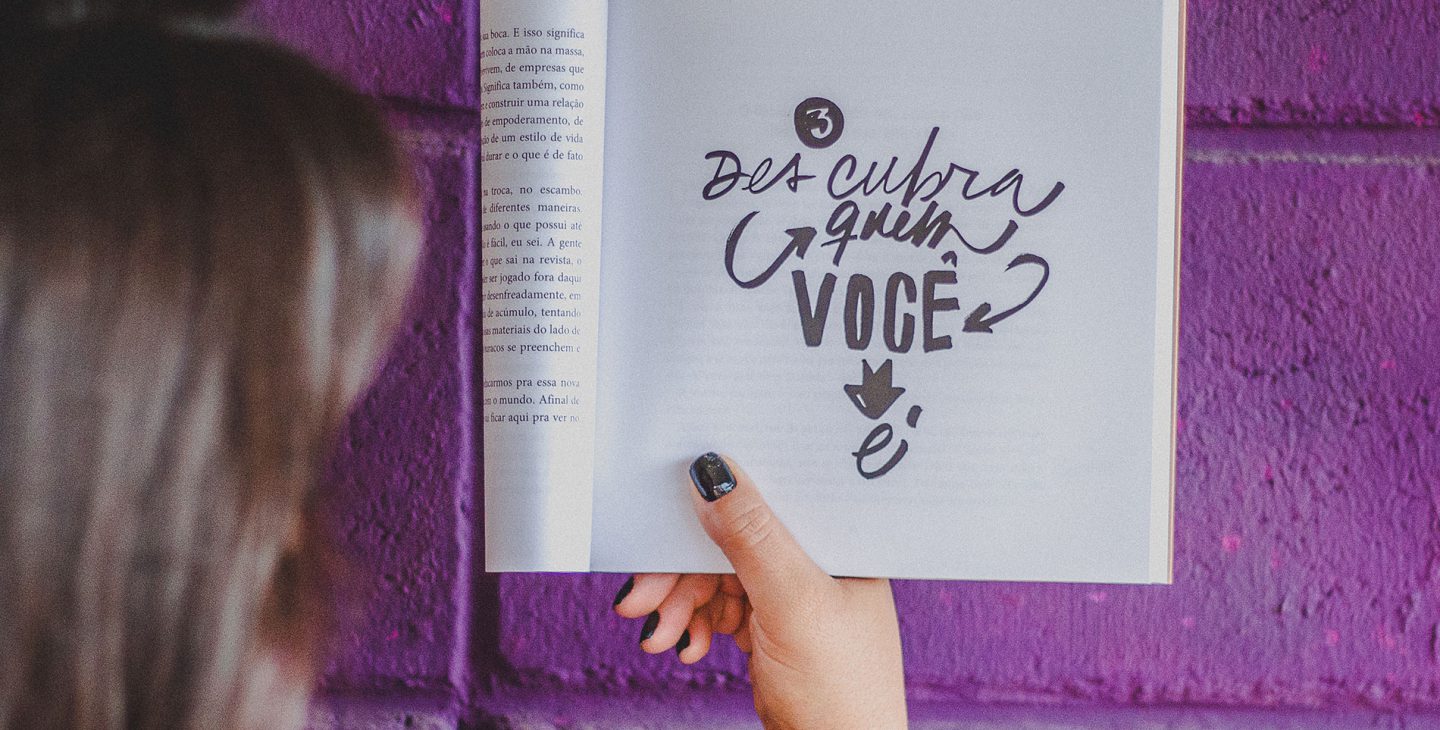 boca. E isso significa
coloca a mão na massa,
de empresas que
Significa também, como
e construir uma relação
de empoderamento, de
de um estilo de vida
durar e o que é de fato
troca, no escambo.
diferentes maneiras.
o que possui até
é fácil, eu sei. A gente
que sai na revista, o
ser jogado fora daqu
desenfreadamente, em
de acúmulo, tentando
materiais do lado de
se preenchem e
pra essa nova
o mundo. Afinal de
ficar aqui pra ver no
3
Descubra
quem
VOCÊ
é